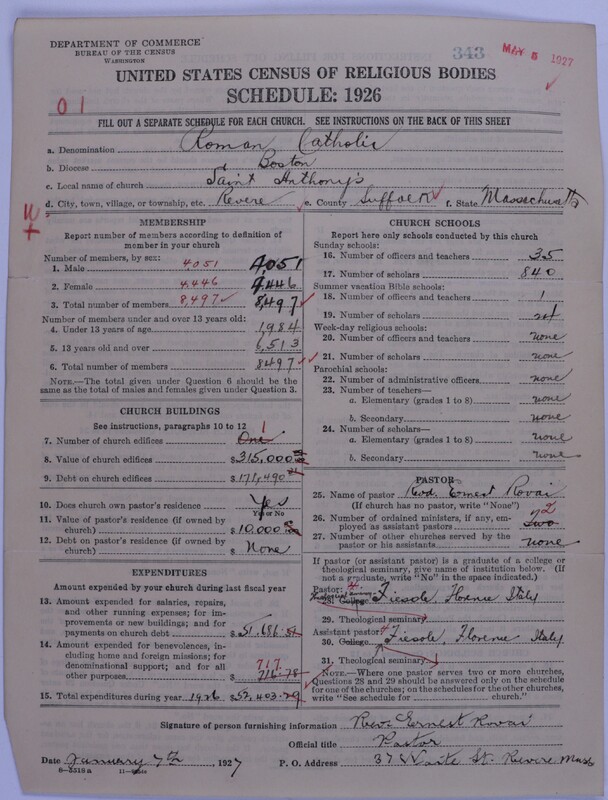 DEPARTMENT OF COMMERCE
BUREAU OF THE CENSUS
WASHINGTON
343
MAY 5 1927
UNITED STATES CENSUS OF RELIGIOUS BODIES
SCHEDULE: 1926
01
FILL OUT A SEPARATE SCHEDULE FOR EACH CHURCH. SEE INSTRUCTIONS ON THE BACK OF THIS SHEET
a. Denomination Roman Catholic
b. Diocese Boston
c. Local name of church Saint Anthony's
d. City, town, village, or township, etc. Revere e. County Suffolk f. State Massachusetts
MEMBERSHIP
Report number of members according to definition of
member in your church
Number of members, by sex:
1. Male 4051 4,051
2. Female 4,446 4,446
3. Total number of members 8,497 8,497
Number of members under and over 13 years old:
4. Under 13 years of age 1,984
5. 13 years old and over 6,513
6. Total number of members 8497
NOTE.—The total given under Question 6 should be
the same as the total of males and females given under Question 3.
CHURCH BUILDINGS
See instructions, paragraphs 10 to 12
7. Number of church edifices One 1
8. Value of church edifices $315,000
9. Debt on church edifices $171,490
10. Does church own pastor's residence? Yes
Yes or No
11. Value of pastor's residence (if owned by
church) $10,000
12. Debt on pastor's residence (if owned by
church) $ None
EXPENDITURES
Amount expended by your church during last fiscal year
13. Amount expended for salaries, repairs,
and other running expenses; for im-
provements or new buildings; and for
payments on church debt $51,686.51
14. Amount expended for benevolences,
including home and foreign missions; for
denominational support; and for all
other purposes 717. 716.78
15. Total expenditures during year 1926 $52,403.29
CHURCH SCHOOLS
Report here only schools conducted by this church
Sunday schools:
16. Number of officers and teachers 35
17. Number of scholars 840
Summer vacation Bible schools:
18. Number of officers and teachers
19. Number of scholars
Week-day religious schools:
20. Number of officers and teachers none
21. Number of scholars none
Parochial schools:
22. Number of administrative officers none
23. Number of teachers—
a. Elementary (grades 1 to 8) none
b. Secondary none
24. Number of scholars—
a. Elementary (grades 1 to 8) none
b. Secondary none
PASTOR
25. Name of pastor Rev. Ernest Rovai
(If church has no pastor, write "None")
26. Number of ordained ministers, if any, em-
ployed as assistant pastors Two 2
27. Number of other churches served by the
pastor or his assistants none
If pastor (or assistant pastor) is a graduate of a college or
theological seminary, give name of institution below. (If
not a graduate, write "No" in the space indicated.)
Pastor:
28. College Fiesole, Florence Italy
29. Theological seminary
Assistant pastor:
30. College Fiesole, Florence Italy
31. Theological seminary
NOTE.—Where one pastor serves two or more churches,
Questions 28 and 29 should be answered only on the schedule
for one of the churches; on the schedules for the other churches,
write "See schedule for church."
Signature of person furnishing information Rev. Ernest Rovai
Official title Pastor
Date January 7th, 1927 P. O. Address 37 Waite St. Revere Mass
8-2518a